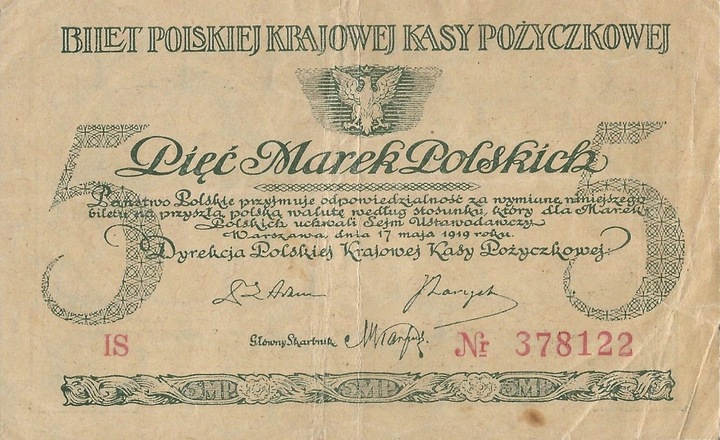 BILET POLSKIEJ KRAJOWEJ KASY POŻYCZKOWEJ
5 5
Pięć Marek Polskich
Państwo Polskie przyjmuje odpowiedzialność za wymianę niniejszego
biletu na przyszłą polską walutę według stosunku, który dla Marek
Polskich uchwali Sejm Ustawodawczy.
Warszawa, dnia 17 maja 1919 roku.
Dyrekcja Polskiej Krajowej Kasy Pożyczkowej:
Główny Skarbnik
IS Nr 378122
5MP. 5MP. 5MP.